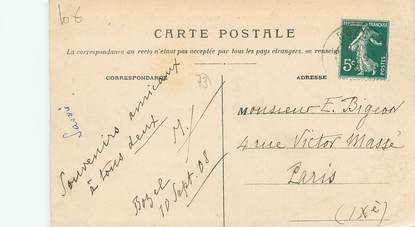 10€
CARTE POSTALE
La correspondance au recto n'étant pas acceptée par tous les pays étrangers, se renseigner
CORRESPONDANCE
ADRESSE
RÉPUBLIQUE FRANÇAISE
5c
POSTES
73
Savoie
Souvenirs amicaux
à tous deux
M.
Bozel
10 Sept. 08
Monsieur E. Bigeon
4 rue Victor Massé
Paris
(IXè)